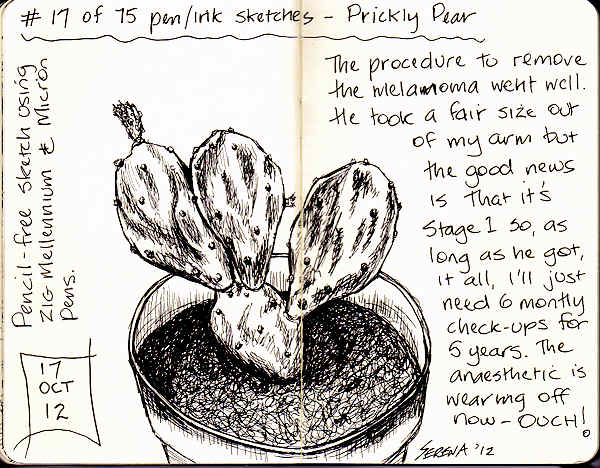 # 17 of 75 pen/ink sketches - Prickly Pear
Pencil-free sketch using
ZIG Mellennium & Micron
Pens.
17
OCT
12
The procedure to remove
the melamoma went well.
He took a fair size out
of my arm but
the good news
is that it's
Stage 1 so, as
long as he got,
it all, I'll just
need 6 montly
check-ups for
5 years. The
anaesthetic is
wearing off
now - OUCH!
SERENA '12